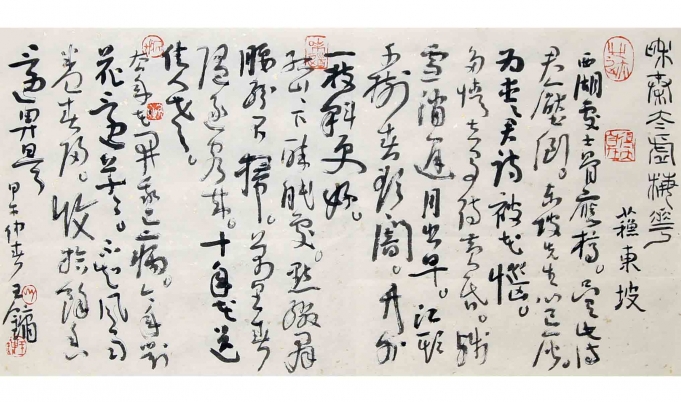 和秦太虛梅花
蘇東坡
西湖處士骨應槁。只有此詩
君壓倒。東坡先生心已灰。
为愛君詩被花惱。
多情立馬待黃昏。殘
雪消遲月出早。江頭
千樹春欲闇。竹外
一枝斜更好。
孤山山下醉眠處。點綴裙
腰紛不掃。萬里春
隨逐客來。十年花送
佳人老。
去年花開我已病。今年對
花還草草。不知風雨
卷春歸。收拾餘香
還畀昊
甲午仲春 王鏞